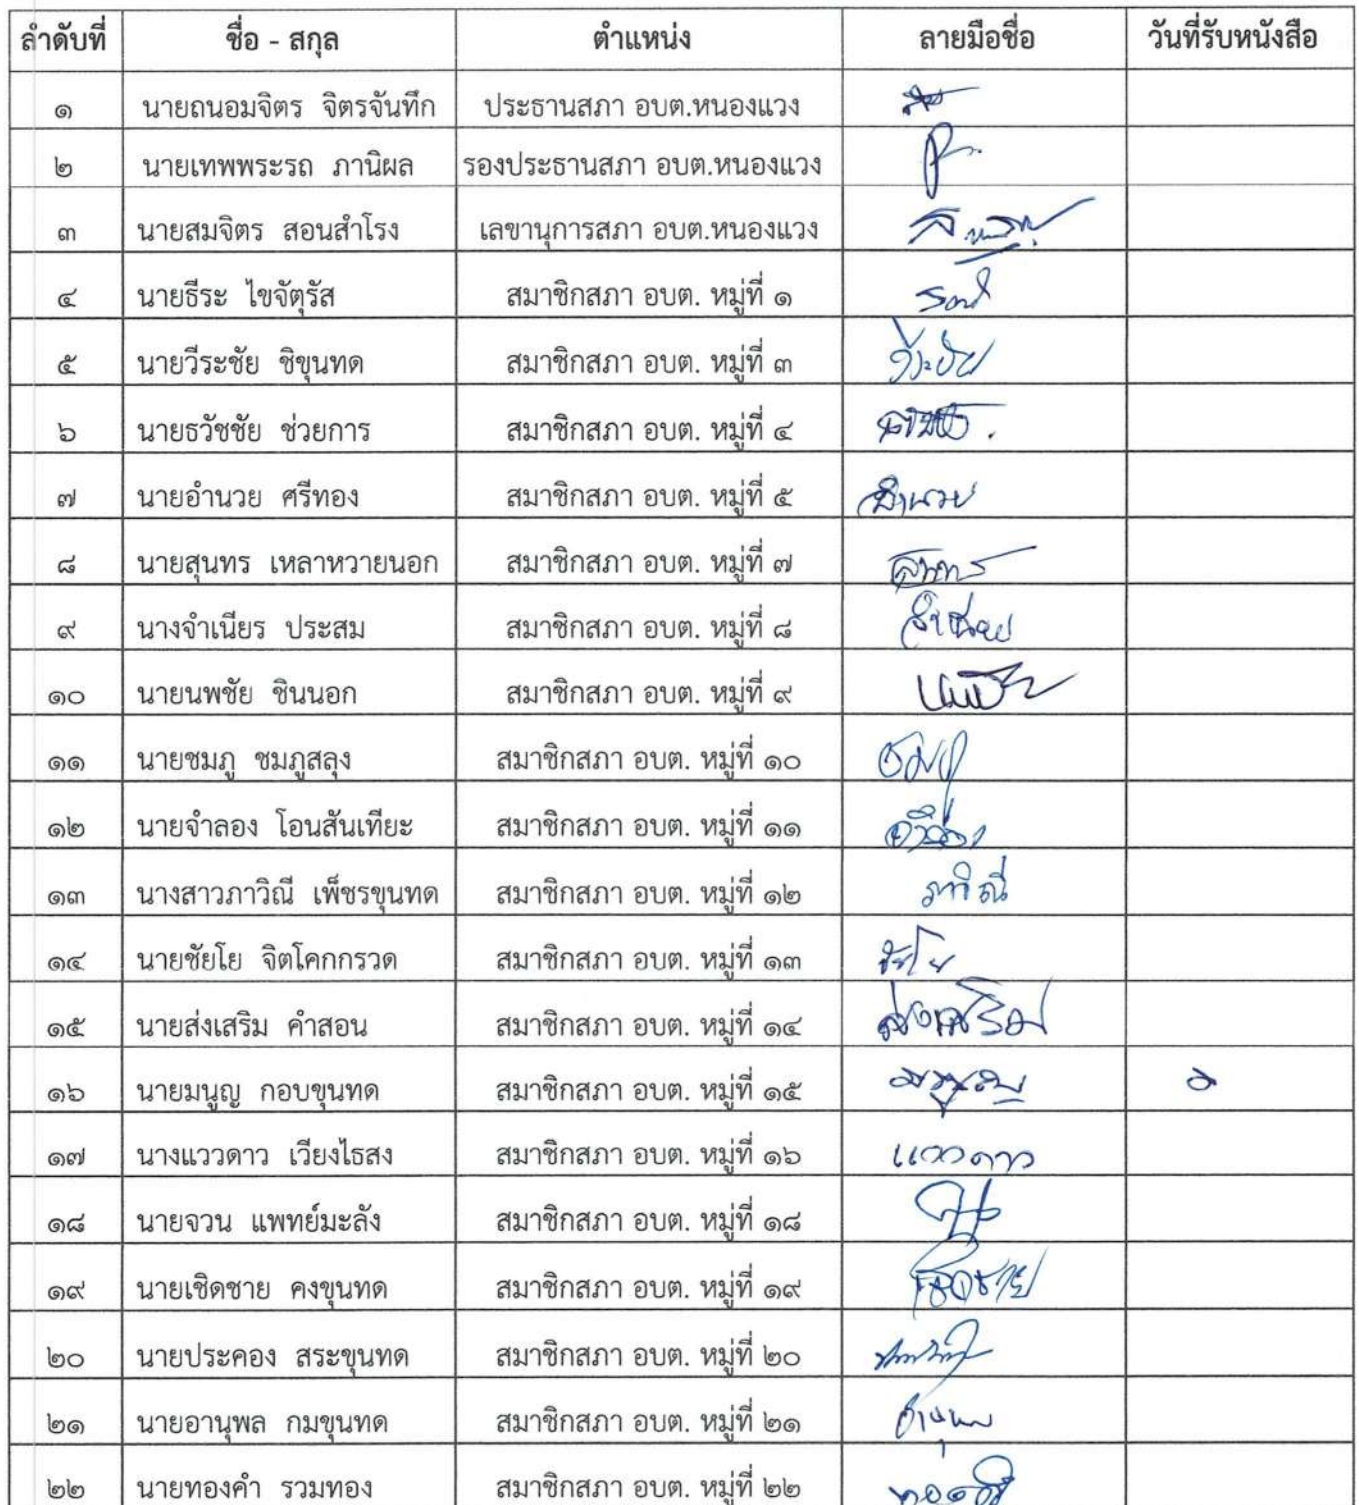 ลำดับที่ ชื่อ - สกุล ตำแหน่ง ลายมือชื่อ วันที่รับหนังสือ
๑ นายถนอมจิตร จิตรจันทึก ประธานสภา อบต.หนองแวง
๒ นายเทพพระรถ ภานิผล รองประธานสภา อบต.หนองแวง
๓ นายสมจิตร สอนสำโรง เลขานุการสภา อบต.หนองแวง
๔ นายธีระ ไขจัตุรัส สมาชิกสภา อบต. หมู่ที่ ๑
๕ นายวีระชัย ชิขุนทด สมาชิกสภา อบต. หมู่ที่ ๓ วีระชัย
๖ นายธวัชชัย ช่วยการ สมาชิกสภา อบต. หมู่ที่ ๔
๗ นายอำนวย ศรีทอง สมาชิกสภา อบต. หมู่ที่ ๕ อำนวย
๘ นายสุนทร เหลาหวายนอก สมาชิกสภา อบต. หมู่ที่ ๗ สุนทร
๙ นางจำเนียร ประสม สมาชิกสภา อบต. หมู่ที่ ๘
๑๐ นายนพชัย ชินนอก สมาชิกสภา อบต. หมู่ที่ ๙
๑๑ นายชมภู ชมภูสลุง สมาชิกสภา อบต. หมู่ที่ ๑๐ ชมภู
๑๒ นายจำลอง โอนสันเทียะ สมาชิกสภา อบต. หมู่ที่ ๑๑
๑๓ นางสาวภาวิณี เพ็ชรขุนทด สมาชิกสภา อบต. หมู่ที่ ๑๒ ภาวิณี
๑๔ นายชัยโย จิตโคกกรวด สมาชิกสภา อบต. หมู่ที่ ๑๓ ชัยโย
๑๕ นายส่งเสริม คำสอน สมาชิกสภา อบต. หมู่ที่ ๑๔ ส่งเสริม
๑๖ นายมนูญ กอบขุนทด สมาชิกสภา อบต. หมู่ที่ ๑๕
๑๗ นางแววดาว เวียงไธสง สมาชิกสภา อบต. หมู่ที่ ๑๖ แววดาว
๑๘ นายจวน แพทย์มะลัง สมาชิกสภา อบต. หมู่ที่ ๑๘
๑๙ นายเชิดชาย คงขุนทด สมาชิกสภา อบต. หมู่ที่ ๑๙ เชิดชาย
๒๐ นายประคอง สระขุนทด สมาชิกสภา อบต. หมู่ที่ ๒๐
๒๑ นายอานุพล กมขุนทด สมาชิกสภา อบต. หมู่ที่ ๒๑ อานุพล
๒๒ นายทองคำ รวมทอง สมาชิกสภา อบต. หมู่ที่ ๒๒